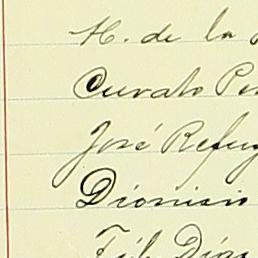 H. de la
Curato
José Refug
Dionisio
Díaz